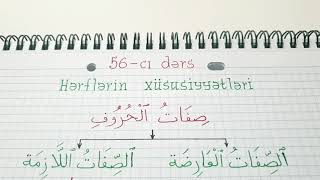 56-cı dərs
Hərflərin xüsusiyyətləri
صِفَاتُ ٱلْحُرُوُفِ
ٱلصِّفَاتُ ٱلْعَارِضَة ٱلصِّفَاتُ ٱللَّازِمَة